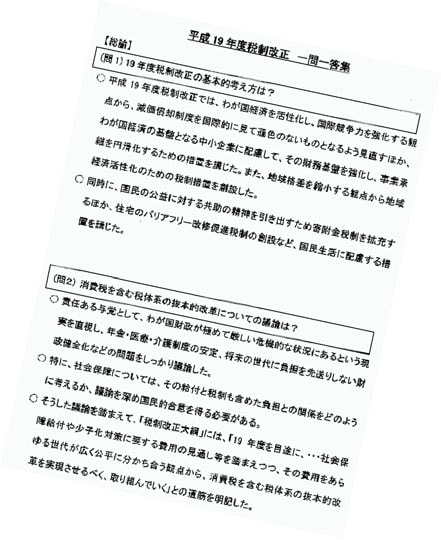 平成19年度税制改正 一問一答集
【総論】
(問1)19年度税制改正の基本的考え方は?
○ 平成19年度税制改正では、わが国経済を活性化し、国際競争力を強化する観
点から、減価償却制度を国際的に見て遜色のないものとなるよう見直すほか、
わが国経済の基盤となる中小企業に配慮して、その財務基盤を強化し、事業承
継を円滑化するための措置を講じた。また、地域格差を縮小する観点から地域
経済活性化のための税制措置を創設した。
○ 同時に、国民の公益に対する共助の精神を引き出すため寄附金税制を拡充す
るほか、住宅のバリアフリー改修促進税制の創設など、国民生活に配慮する措
置を講じた。
(問2) 消費税を含む税体系の抜本的改革についての議論は?
○ 責任ある与党として、わが国財政が極めて厳しい危機的な状況にあるという現
実を直視し、年金・医療・介護制度の安定、将来の世代に負担を先送りしない財
政健全化などの問題をしっかり議論した。
○ 特に、社会保障については、その給付と税制も含めた負担との関係をどのよう
に考えるか、議論を深め国民的合意を得る必要がある。
○ そうした議論を踏まえて、「税制改正大綱」には、「19 年度を目途に、・・・社会保
障給付や少子化対策に要する費用の見通し等を踏まえつつ、その費用をあら
ゆる世代が広く公平に分かち合う観点から、消費税を含む税体系の抜本的改
革を実現させるべく、取り組んでいく」との道筋を明記した。